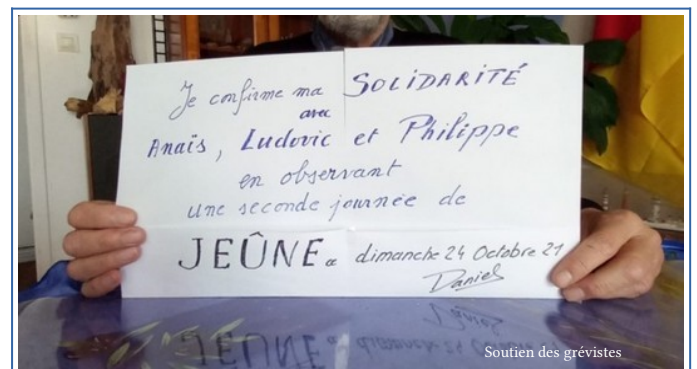 Je confirme ma SOLIDARITÉ
avec
Anaïs, Ludovic et Philippe
en observant
une seconde journée de
JEÛNE dimanche 24 Octobre 21
Daniel
Soutien des grévistes